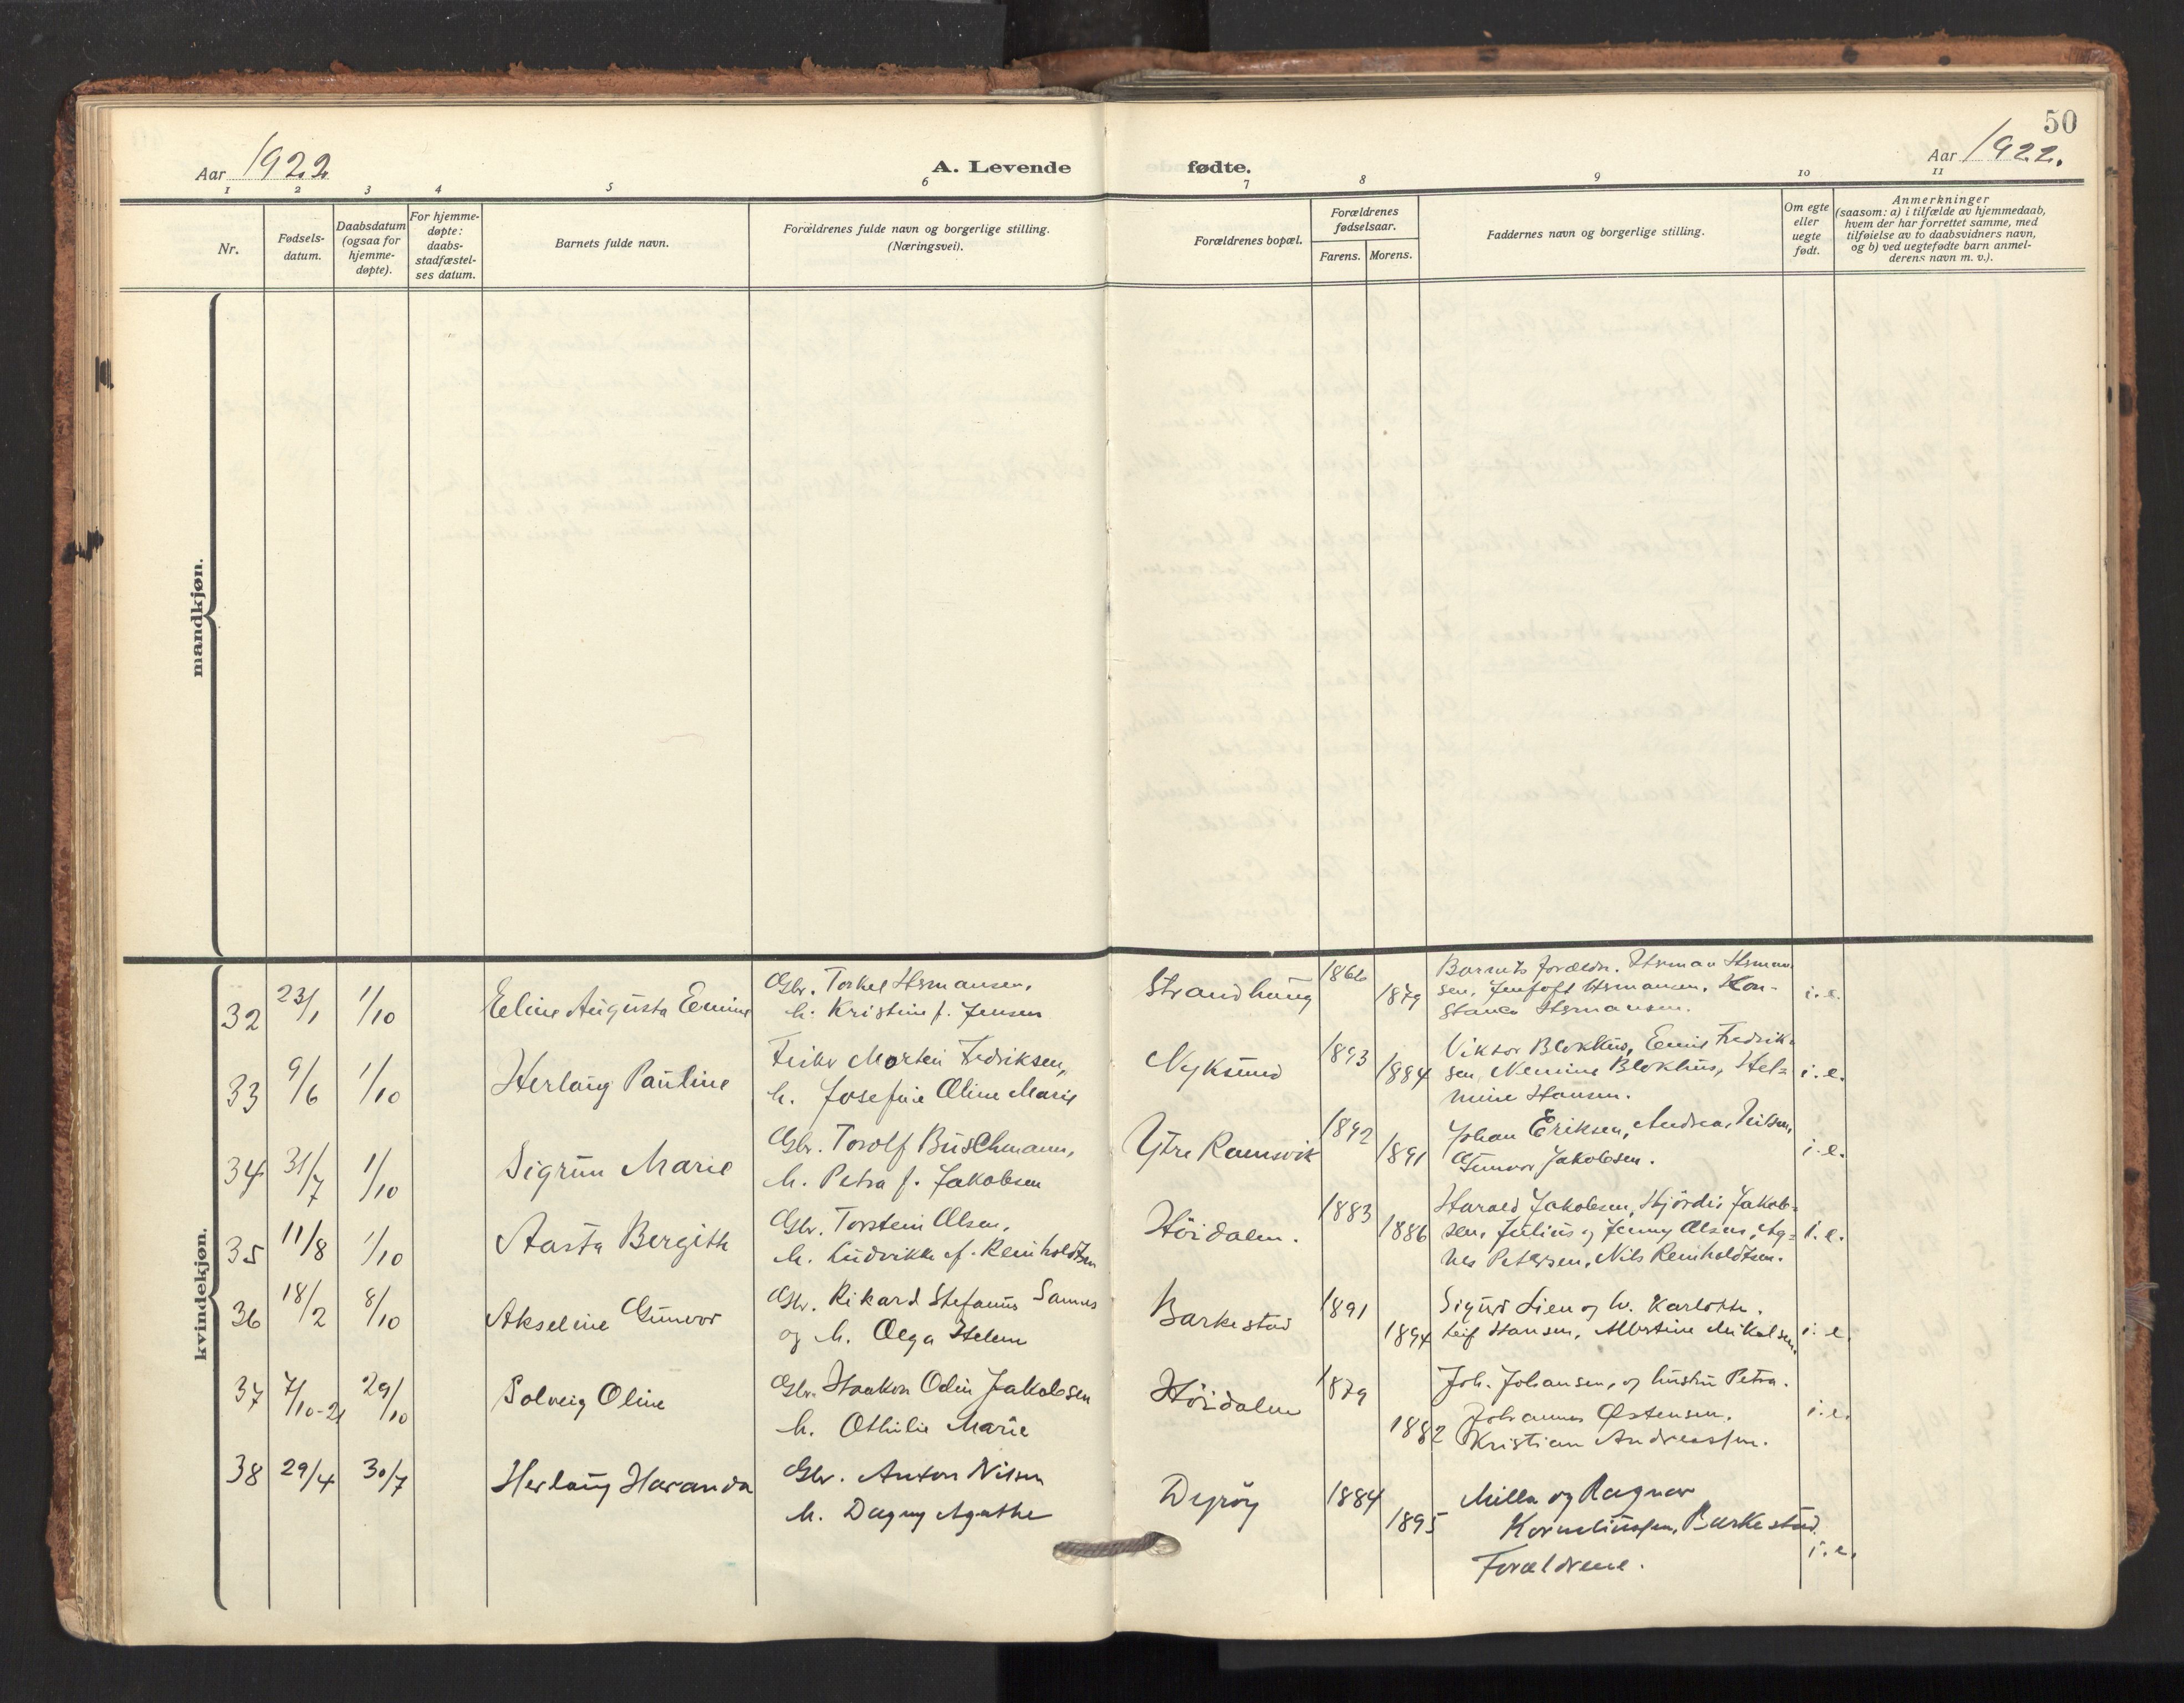 50
Aar 1922
A. Levende fødte.
Aar 1922.
1 2 3 4 5 6 7 8 9 10 11
Nr.
Fødsels-
datum.
Daabsdatum
(ogsaa for
hjemme-
døpte).
For hjemme-
døpte:
daabs-
stadfæstel-
ses datum.
Barnets fulde navn.
Forældrenes fulde navn og borgerlige stilling.
(Næringsvei).
Forældrenes bopæl.
Forældrenes
fødselsaar.
Farens. Morens.
Faddernes navn og borgerlige stilling.
Om egte
eller
uegte
født.
Anmerkninger
(saasom: a) i tilfælde av hjemmedaab,
hvem der har forrettet samme, med
tilføielse av to daabsvidners navn,
og b) ved uegtefødte barn anmel-
derens navn m. v.).
mandkjøn.
kvindekjøn.
32 23/1 1/10 Eline Augusta Emine
Gbr. Torkel Hermansen,
h. Kristine f. Jensen
Strandhaug 1866 1879
Barnets forældr. Herman Herman-
sen, Jentoft Hermansen, Kon-
stance Hermansen.
i. e.
33 9/6 1/10 Herlaug Pauline
Fisker Morten Fedriksen,
h. Josefine Oline Marie
Nyksund 1893 1884
Viktor Blokhus, Emil Fredrik-
sen, Nemine Blokhus, Hel-
mine Hansen.
i. e.
34 31/7 1/10 Sigrun Marie
Gbr. Torolf Buschmann,
h. Petra f. Jakobsen
Ytre Ramsvik 1892 1891
Johan Eriksen, Andrea Nilsen,
Gunvor Jakobsen.
i. e.
35 11/8 1/10 Aasta Bergith
Gbr. Torstein Olsen,
h. Ludvikke f. Reinholdtsen
Höidalen. 1883 1886
Harald Jakobsen, Hjördis Jakob-
sen, Julius og Jenny Olsen, Ag-
nes Petersen, Nils Reinholdtsen.
i. e.
36 18/2 8/10 Akseline Gunvor
Gbr. Rikard Stefanus Sannes
og h. Olga Helene
Barkestad 1891 1894
Sigurd Lien og h. Karlotte.
Leif Hansen, Albertine Mikalsen.
i. e.
37 7/10-21 29/10 Solveig Oline
Gbr. Haakon Odin Jakobsen
h. Othilie Marie
Höidalen 1879 1882
Joh. Johansen, og hustru Petra.
Johannes Østensen.
Kristian Andreassen.
i. e.
38 29/4 30/7 Herlaug Haranda
Gbr. Anton Nilsen
h. Dagny Agathe
Dyröy 1884 1895
Milla og Ragnar
Korneliussen, Barkestad.
Forældrene.
i. e.